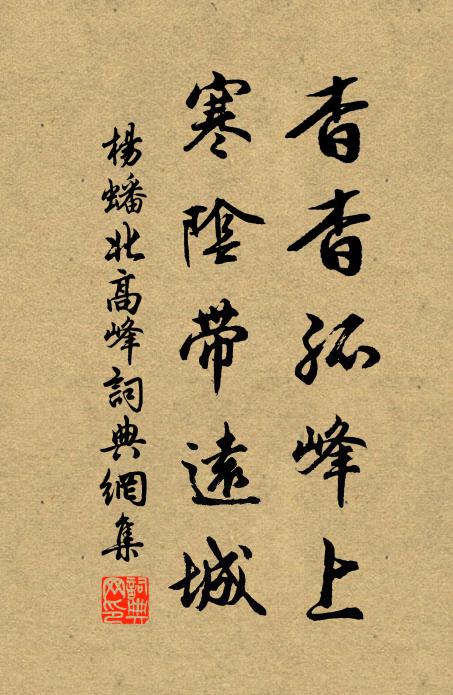 杳杳孤峰上
寒陰帶遠城
楊蟠北高峰詞典網集
詞典网印